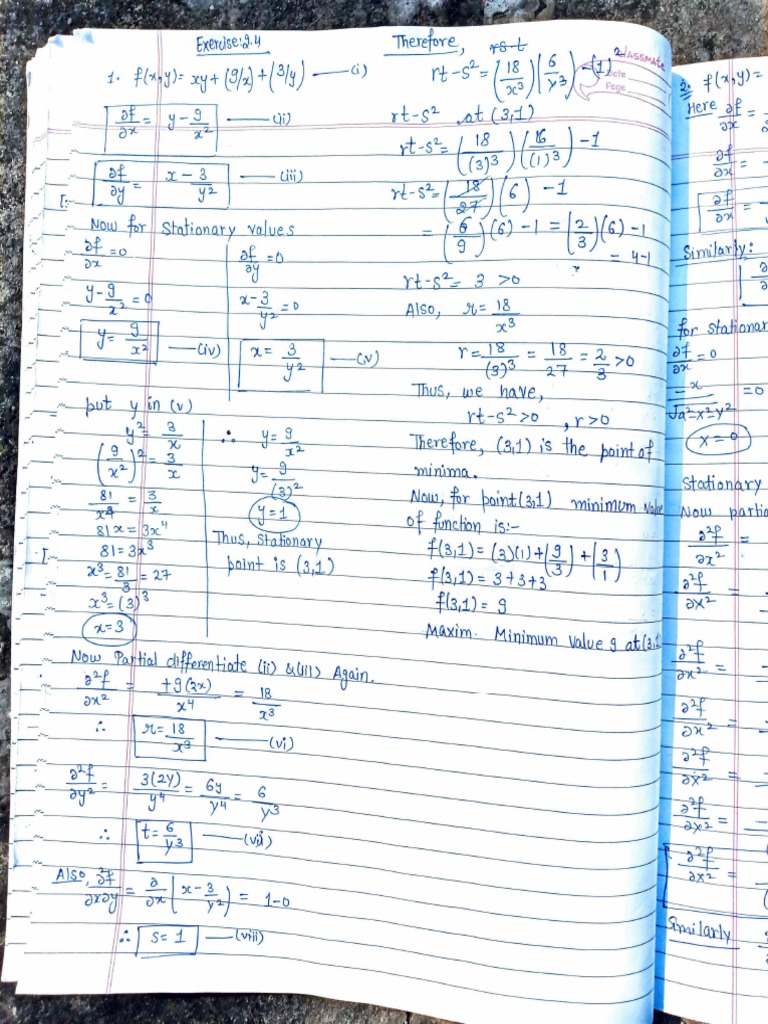 Exercise: 2.4
1. f(x,y) = xy + (9/x) + (3/y) —(i)
∂f/∂x = y - 9/x² —(ii)
∂f/∂y = x - 3/y² —(iii)
Now for Stationary values
∂f/∂x = 0
y - 9/x² = 0
y = 9/x² —(iv)
∂f/∂y = 0
x - 3/y² = 0
x = 3/y² —(v)
put y in (v)
y² = 3/x
(9/x²)² = 3/x
81/x⁴ = 3/x
81x = 3x⁴
81 = 3x³
x³ = 81/3 = 27
x³ = (3)³
x = 3
∴ y = 9/x²
y = 9/(3)²
y = 1
Thus, stationary
point is (3,1)
Now Partial differentiate (ii) & (iii) Again.
∂²f/∂x² = +9(2x)/x⁴ = 18/x³
∴ r = 18/x³ —(vi)
∂²f/∂y² = 3(2y)/y⁴ = 6y/y⁴ = 6/y³
∴ t = 6/y³ —(vii)
Also, ∂²f/∂x∂y = ∂/∂x (x - 3/y²) = 1-0
∴ s = 1 —(viii)
Therefore,
classmate
Date
Page
rt-s² = (18/x³)(6/y³) - (1)²
rt-s² at (3,1)
rt-s² = (18/(3)³)(6/(1)³) - 1
rt-s² = (18/27)(6) - 1
= (6/9)(6) - 1 = (2/3)(6) - 1
= 4-1
rt-s² = 3 > 0
Also, r = 18/x³
r = 18/(3)³ = 18/27 = 2/3 > 0
Thus, we have,
rt-s² > 0, r > 0
Therefore, (3,1) is the point of
minima.
Now, for point (3,1) minimum value
of function is:-
f(3,1) = (3)(1) + (9/3) + (3/1)
f(3,1) = 3+3+3
f(3,1) = 9
Maxim. Minimum value 9 at (3,1)
2. f(x,y) =
Here ∂f/∂x =
∂f/∂x =
∂f/∂x =
Similarly:
for stationar
∂f/∂x = 0
-x/√a²-x²y² = 0
x = 0
Stationary
Now partia
∂²f/∂x² =
∂²f/∂x² =
∂²f/∂x² =
∂²f/∂x² =
∂²f/∂x² =
∂²f/∂x² =
∂²f/∂x² =
Similarly